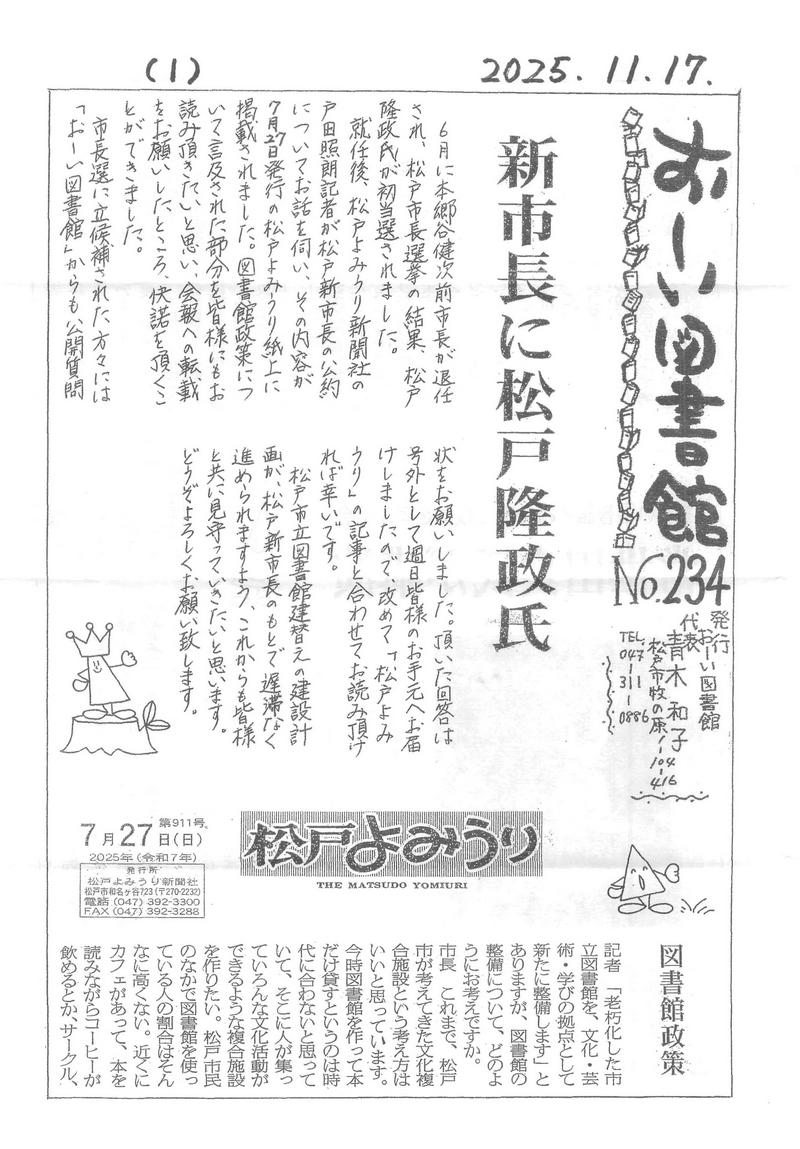 (1)
2025.11.17.
おーい図書館
No.234
発行 おーい図書館
代表 青木和子
松戸市牧の原1-104-416
TEL 047-311-0886
新市長に松戸隆政氏
6月に本郷谷健次前市長が退任
され、松戸市長選挙の結果、松戸
隆政氏が初当選されました。
就任後、松戸よみうり新聞社の
戸田照朗記者が松戸新市長の公約
についてお話を伺い、その内容が
7月27日発行の松戸よみうり紙上に
掲載されました。図書館政策につ
いて言及された部分を皆様にもお
読み頂きたいと思い、会報への転載
をお願いしたところ、快諾を頂くこ
とができました。
市長選に立候補された方々には
「おーい図書館」からも公開質問
状をお願いしました。頂いた回答は
号外として過日皆様のお手元へお届
けしましたので、改めて「松戸よみ
うり」の記事と合わせてお読み頂け
れば幸いです。
松戸市立図書館建替えの建設計
画が、松戸新市長のもとで遅滞なく
進められますよう、これからも皆様
と共に見守っていきたいと思います。
どうぞよろしくお願い致します。
第911号
7月27日(日)
2025年(令和7年)
発行所
松戸よみうり新聞社
松戸市和名ヶ谷723(〒270-2232)
電話 (047) 392-3300
FAX (047) 392-3288
松戸よみうり
THE MATSUDO YOMIURI
図書館政策
記者 「老朽化した市
立図書館を、文化・芸
術・学びの拠点として
新たに整備します」と
ありますが、図書館の
整備について、どのよ
うにお考えですか。
市長 これまで、松戸
市が考えてきた文化複
合施設という考え方は
いいと思っています。
今時図書館を作って本
だけ貸すというのは時
代に合わないと思って
いて、そこに人が集っ
ていろんな文化活動が
できるような複合施設
を作りたい。松戸市民
のなかで図書館を使っ
ている人の割合はそん
なに高くない。近くに
カフェがあって、本を
読みながらコーヒーが
飲めるとか、サークル、